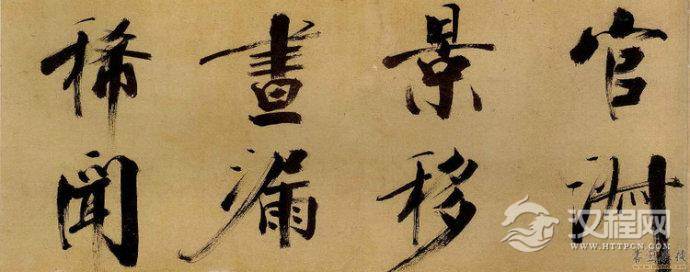 官
景移
晝漏
稀聞
汉程网
WWW.HTTPCN.COM